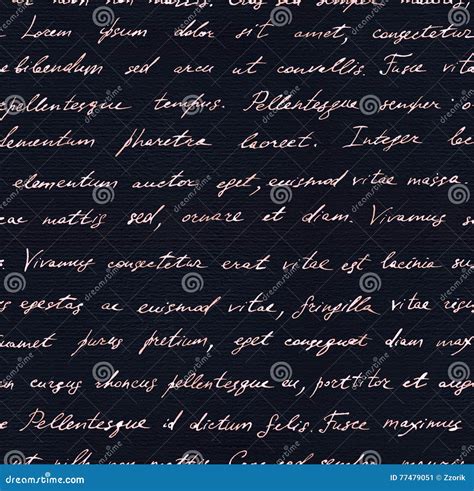 non mattis. Cras semper
Lorem ipsum dolor sit amet, consectetur
bibendum sed arcu ut convallis. Fusce vita
pellentesque tempus. Pellentesque semper
lementum pharetra laoreet. Integer lac
elementum auctor eget, euismod vitae massa
eac mattis sed, ornare et diam. Vivamus s
. Vivamus consectetur erat vitae est lacinia su
us egestas ac euismod vitae, fringilla vitae ris
uamet purus pretium, eget consequat diam max
en cursus rhoncus pellentesque eu, porttitor et augu
e Pellentesque id dictum felis. Fusce maximus
dreamstime.com
ID 77479051 © Zzorik